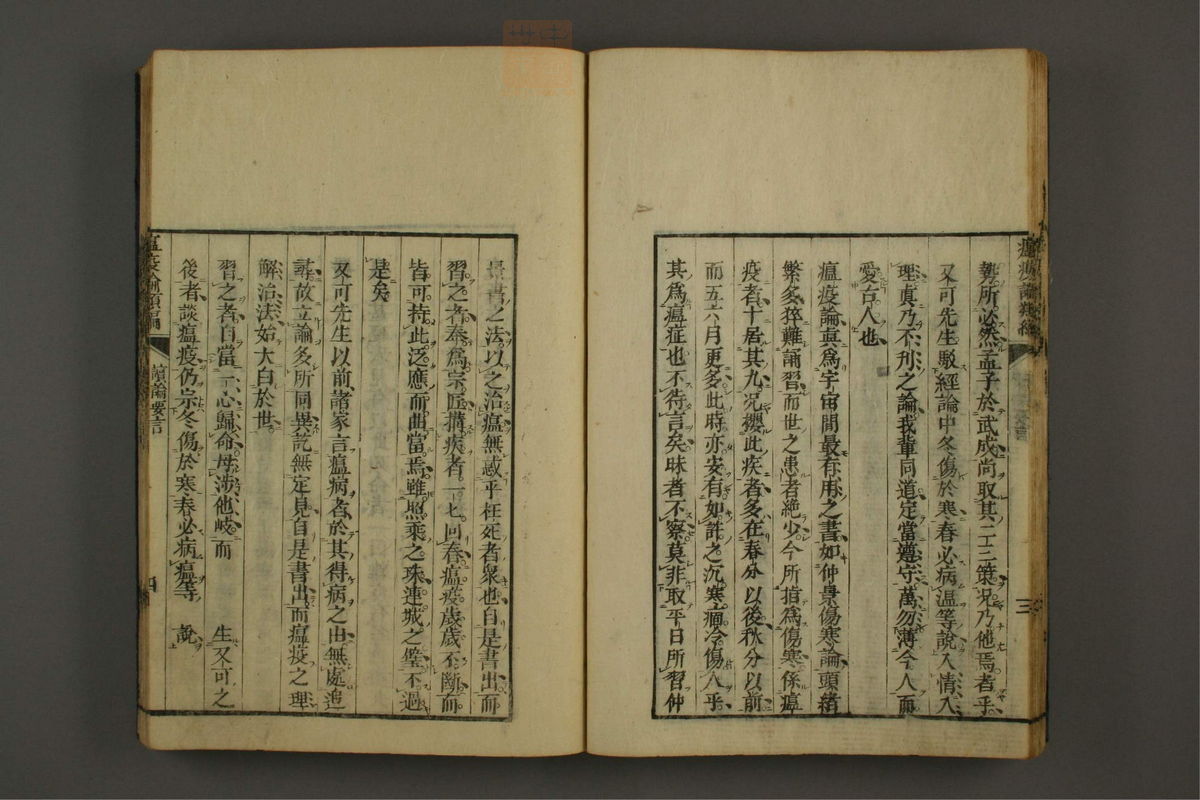 勢所必然孟子於武成尚取其二三策况乃他焉者乎
又可先生駁經論中冬傷於寒春必病温等說入情入
理眞乃不刊之論我輩同道定當遵守萬勿薄今人而
愛古人也
瘟疫論眞爲宇宙間最有用之書如仲景傷寒論頭緒
繁多猝難誦習而世之患者絶少今所指爲傷寒係瘟
疫者十居其九况攖此疾者多在春分以後秋分以前
而五六月更多此時亦安有如許之沉寒痼冷傷人乎
其爲瘟症也不待言矣昧者不察莫非取平日所習仲
三
景書之法以之治瘟無惑乎枉死者衆也自是書出而
習之者奉爲宗匠搆疾者一匕回春瘟疫歲歲不斷而
皆可持此泛應而曲當焉雖照乘之珠連城之璧不過
是矣
又可先生以前諸家言瘟病者於其得病之由無處追
尋故立論多所同異訖無定見自是書出而瘟疫之理
解治法始大白於世
習之者自當一心歸命毋涉他岐而 生又可之
後者談瘟疫仍宗冬傷於寒春必病瘟等 說
讀論要言
四